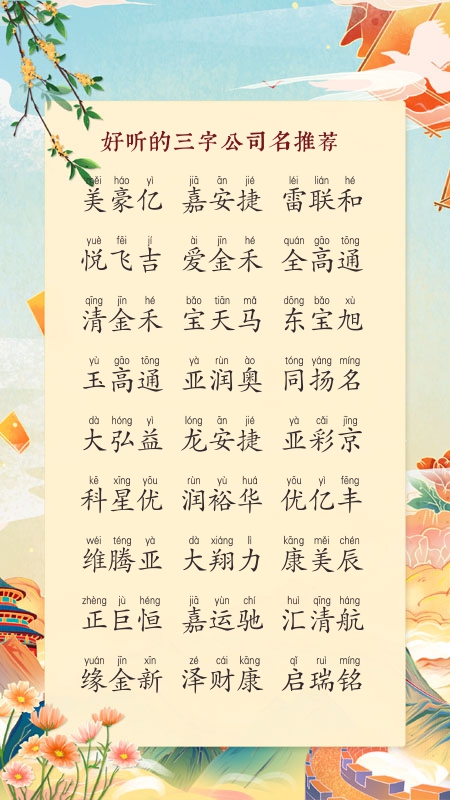 好听的三字公司名推荐
měi háo yì jiā ān jié léi lián hé
美豪亿 嘉安捷 雷联和
yuè fēi jí ài jīn hé quán gāo tōng
悦飞吉 爱金禾 全高通
qīng jīn hé bǎo tiān mǎ dōng bǎo xù
清金禾 宝天马 东宝旭
yù gāo tōng yà rùn ào tóng yáng míng
玉高通 亚润奥 同扬名
dà hóng yì lóng ān jié yà cǎi jīng
大弘益 龙安捷 亚彩京
kē xīng yōu rùn yù huá yōu yì fēng
科星优 润裕华 优亿丰
wéi téng yà dà xiáng lì kāng měi chén
维腾亚 大翔力 康美辰
zhèng jù héng jiā yùn chí huì qīng háng
正巨恒 嘉运驰 汇清航
yuán jīn xīn zé cái kāng qǐ ruì míng
缘金新 泽财康 启瑞铭